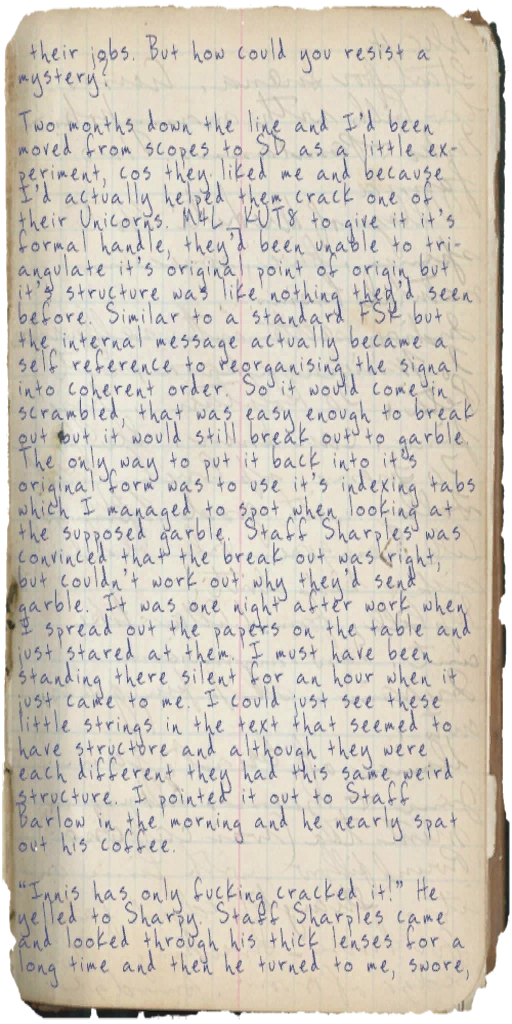 their jobs. But how could you resist a
mystery?
Two months down the line and I'd been
moved from scopes to SD as a little ex-
periment, cos they liked me and because
I'd actually helped them crack one of
their Unicorns. M4L_KUT8 to give it it's
formal handle, they'd been unable to tri-
angulate it's original point of origin but
it's structure was like nothing they'd seen
before. Similar to a standard FSK but
the internal message actually became a
self reference to reorganising the signal
into coherent order. So it would come in
scrambled, that was easy enough to break
out but it would still break out to garble.
The only way to put it back into it's
original form was to use it's indexing tabs
which I managed to spot when looking at
the supposed garble. Staff Sharples was
convinced that the break out was right,
but couldn't work out why they'd send
garble. It was one night after work when
I spread out the papers on the table and
just stared at them. I must have been
standing there silent for an hour when it
just came to me. I could just see these
little strings in the text that seemed to
have structure and although they were
each different they had this same weird
structure. I pointed it out to Staff
Barlow in the morning and he nearly spat
out his coffee.
"Innis has only fucking cracked it!" He
yelled to Sharpy. Staff Sharples came
and looked through his thick lenses for a
long time and then he turned to me, swore,